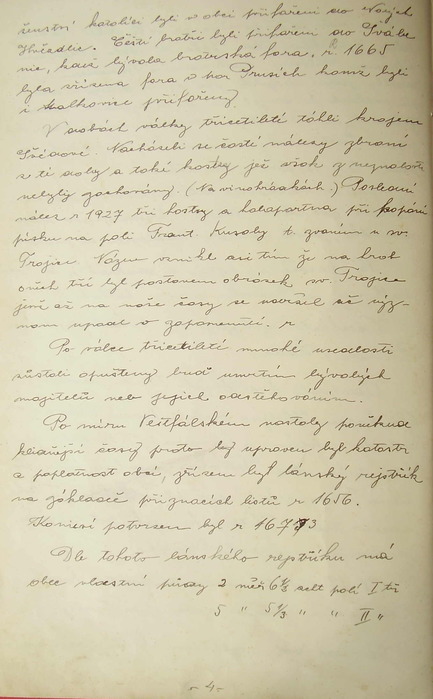 ženství katolíci byli v obci přifařeni do Nových
Hvězdlic. Čeští bratři byli přifařeni do Švábe-
nic, kde bývala bratrská fara. r. 1665
byla zřízena fara v hor Prusích kamž byli
i Malkovice přifařeny.
V dobách války třicetileté táhli krajem
Švédové. Nacházeli se časté nálezy zbraní
z té doby a také kostry jež však z neznalosti
nebyly zachovány. (Na vinohrádkách.) Poslední
nález r 1927 tři kostry a halapartna při kopání
písku na poli Frant. Kusaly t. zvaném u sv.
Trojice. Název vznikl asi tím že na hrob
oněch tří byl postaven obrázek sv. Trojice
jenž až na naše časy se udržel až výz-
nam upadl v zapomenutí.
Po válce třicetileté mnohé usedlosti
zůstali opuštěny buď umrtím bývalých
majitelů neb jejich odstěhováním.
Po míru Vestfálském nastaly poněkud
klidnější časy proto byl upraven byl katastr
a poplatnost obcí, zřízen byl lánský rejstřík
na základě přiznacích listů r 1656.
Komisí potvrzen byl r 1673
Dle tohoto lánského rejstříku má
obec vlastní půdy 2 měř 6 1/3 selt polí I tř
5 " 5 1/3 " " II "
- 4 -